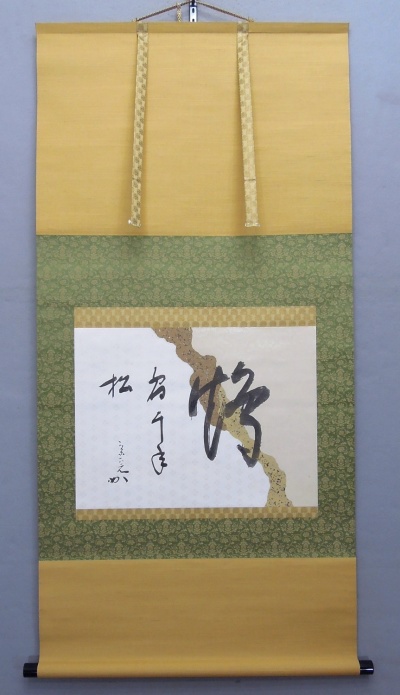 鶴
宿千年
松